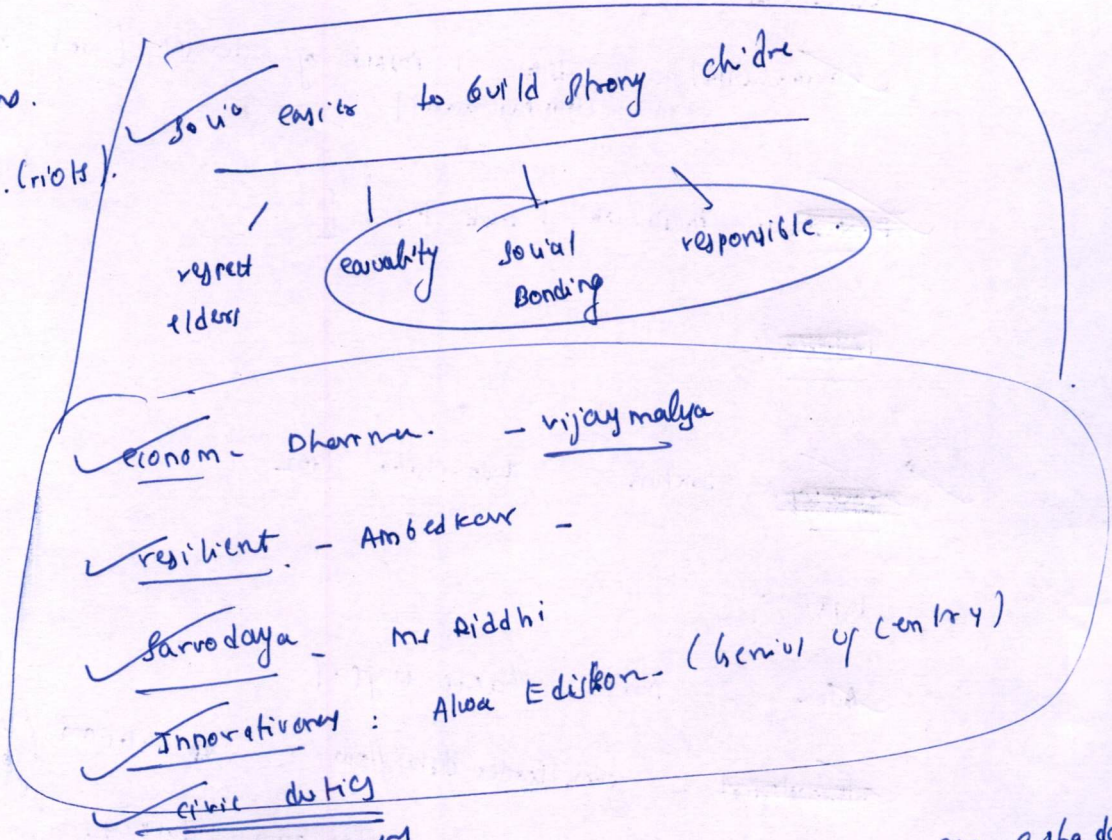 (riots).
Social easier to build strong childre
respect elders
equality
Social Bonding
responsible.
econom - Dharma. - vijay malya
resilient. - Ambedkar -
Sarvodaya - Mr Riddhi
Innovativeness : Alwa Edison - (Genius of Century)
civic duties